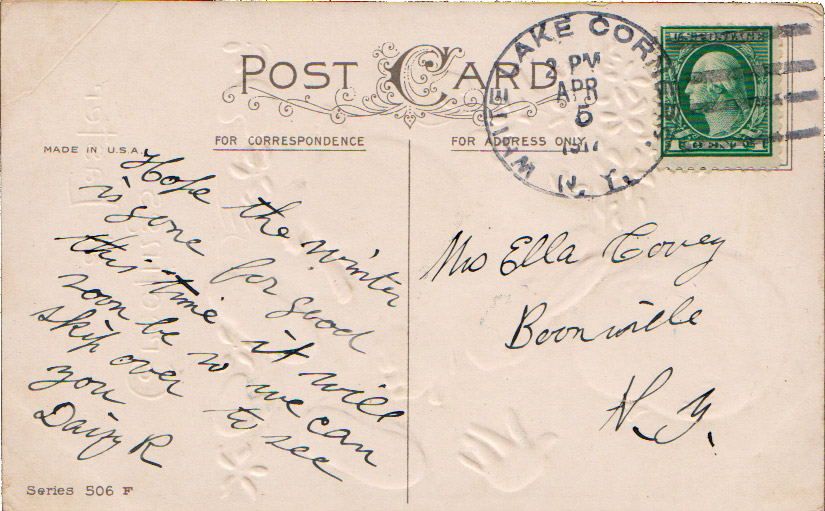 POST CARD
WHITE LAKE CORNERS.
2 PM
APR
5
1917
N. Y.
U.S. POSTAGE
MADE IN U.S.A.
FOR CORRESPONDENCE
FOR ADDRESS ONLY
Hope the winter
is gone for good
this time it will
soon be so we can
skip over to see
you
Daisy R
Mrs Ella Covey
Boonville
N. Y.
Series 506 F